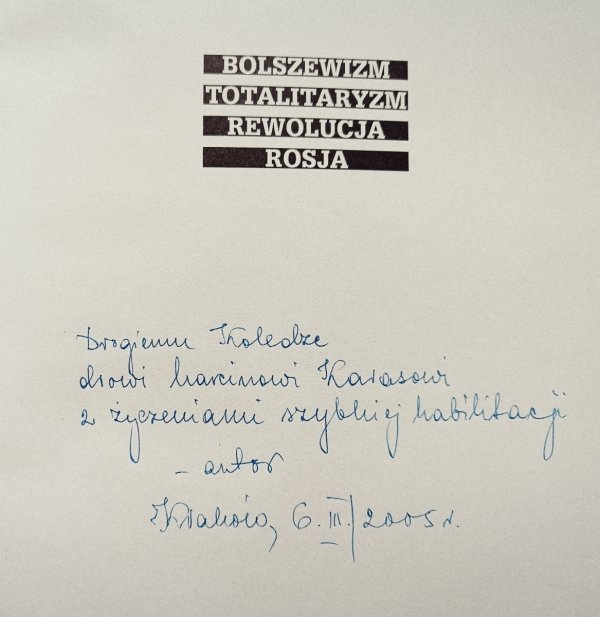 BOLSZEWIZM
TOTALITARYZM
REWOLUCJA
ROSJA
Drogiemu Koledze
drowi Marcinowi Karasowi
z życzeniami szybkiej habilitacji
– autor
Kraków, 6. III. 2005 r.